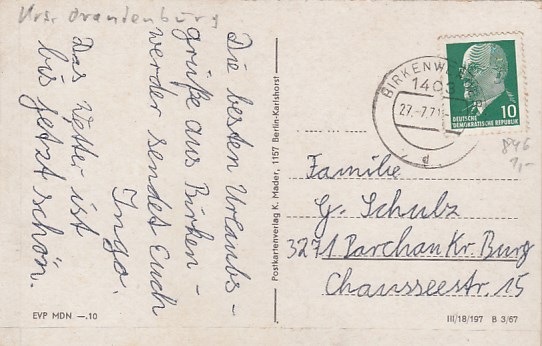 Krs. Brandenburg
Die besten Urlaubs-
grüße aus Birken-
werder sendet Euch
Ingo.
Das Wetter ist
bis jetzt schön.
EVP MDN —.10
Postkartenverlag K. Mader, 1157 Berlin-Karlshorst
BIRKENW
1403
27.-7.71
d
10
DEUTSCHE
DEMOKRATISCHE REPUBLIK
846
1,-
Familie
G. Schulz
3271 Parchan Kr. Burg
Chausseestr. 15
III/18/197 B 3/67